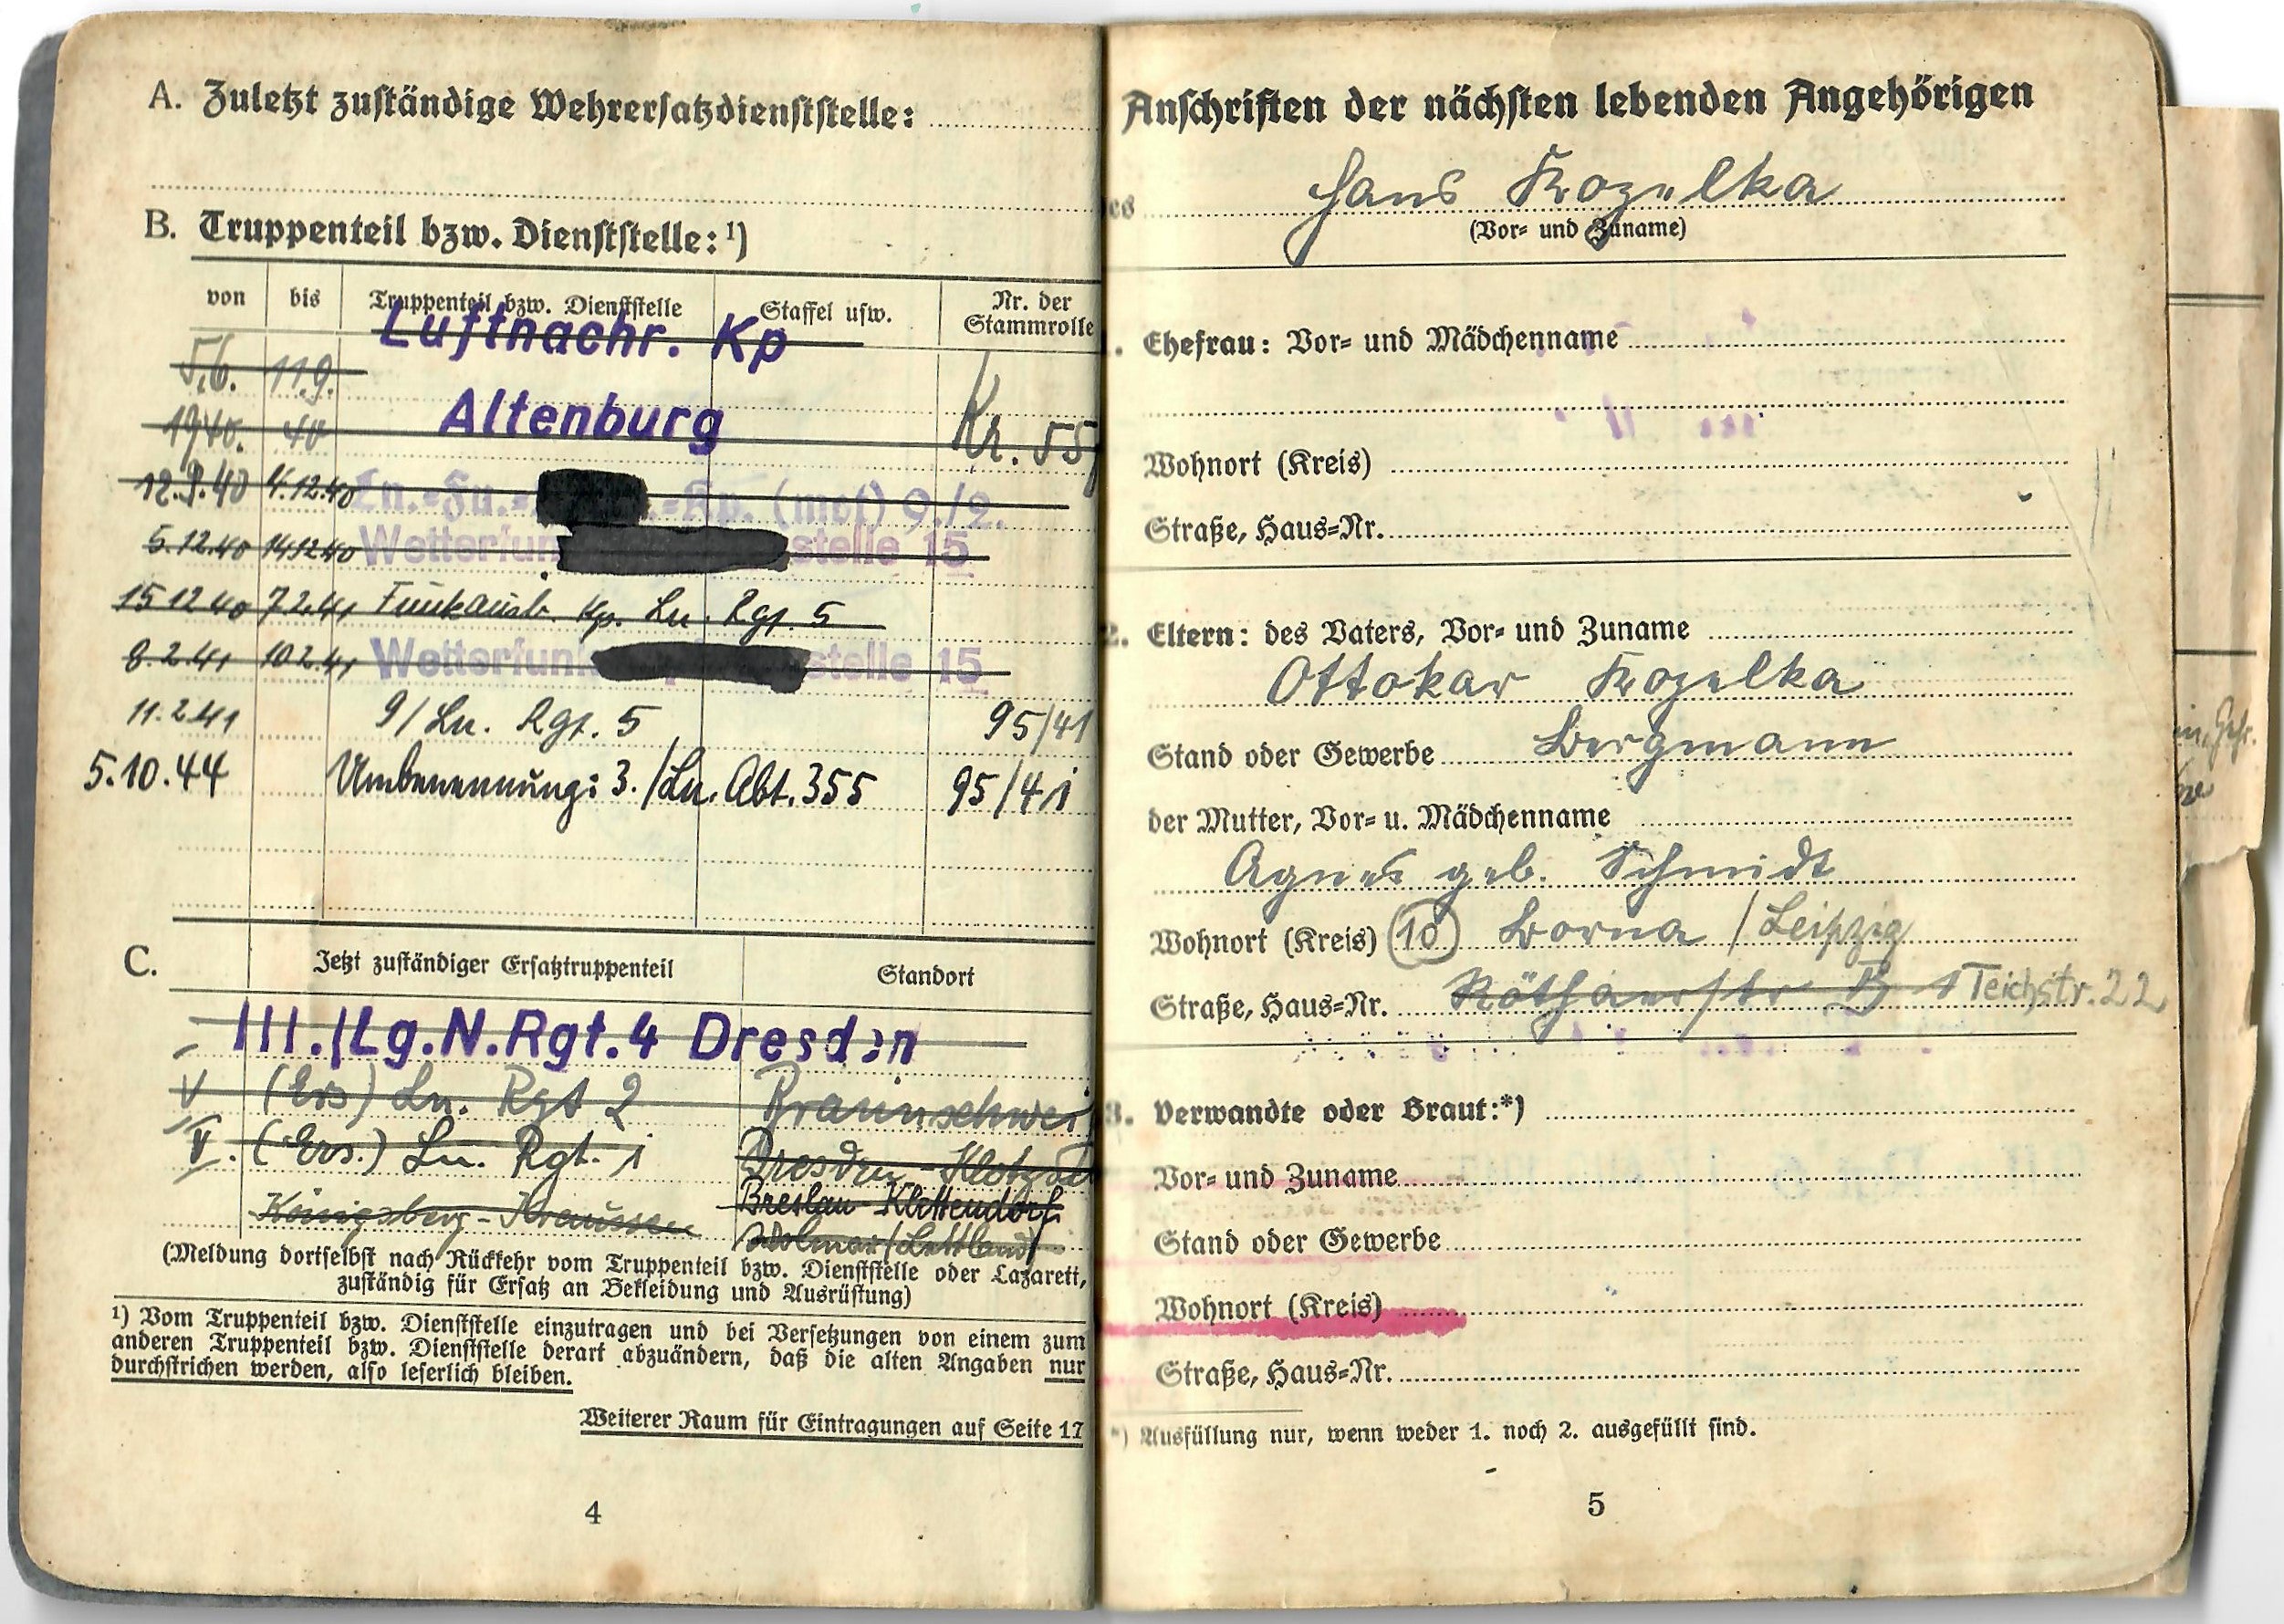 A. Zuletzt zuständige Wehrersatzdienststelle:
B. Truppenteil bzw. Dienststelle:¹)
von bis Truppenteil bzw. Dienststelle Staffel usw. Nr. der Stammrolle
Luftnachr. Kp
5.6. 11.9.
Altenburg
1940. 40 Kr. 55
12.9.40 4.12.40 Ln.-Fu.- .-Kp. (mot) 9./2.
5.12.40 14.12.40 Wetterfun stelle 15
15 12 40 7 2.41 Funkausb. Kp. Ln. Rgt. 5
8.2.41 10 2.41 Wetterfunk stelle 15
11.2.41 9/Ln. Rgt. 5 95/41
5.10.44 Umbenennung: 3./Ln. Abt. 355 95/41
C. Jetzt zuständiger Ersatztruppenteil Standort
III./Lg.N.Rgt.4 Dresden
V (Ers) Ln. Rgt 2 Braunschwei
V. (Ers.) Ln. Rgt. 1 Dresden-Klotzsch
Breslau-Klettendorf
Königsberg- Wolmar (Lettland)
(Meldung dortselbst nach Rückkehr vom Truppenteil bzw. Dienststelle oder Lazarett,
zuständig für Ersatz an Bekleidung und Ausrüstung)
¹) Vom Truppenteil bzw. Dienststelle einzutragen und bei Versetzungen von einem zum
anderen Truppenteil bzw. Dienststelle derart abzuändern, daß die alten Angaben nur
durchstrichen werden, also leserlich bleiben.
Weiterer Raum für Eintragungen auf Seite 17
4
Anschriften der nächsten lebenden Angehörigen
es Hans Kozelka
(Vor- und Zuname)
. Ehefrau: Vor- und Mädchenname
Wohnort (Kreis)
Straße, Haus-Nr.
2. Eltern: des Vaters, Vor- und Zuname
Ottokar Kozelka
Stand oder Gewerbe Bergmann
der Mutter, Vor- u. Mädchenname
Agnes geb. Schmidt
Wohnort (Kreis) (10) Borna / Leipzig
Straße, Haus-Nr. Röthaerstr B 1 Teichstr. 22
3. Verwandte oder Braut:*)
Vor- und Zuname
Stand oder Gewerbe
Wohnort (Kreis)
Straße, Haus-Nr.
*) Ausfüllung nur, wenn weder 1. noch 2. ausgefüllt sind.
5